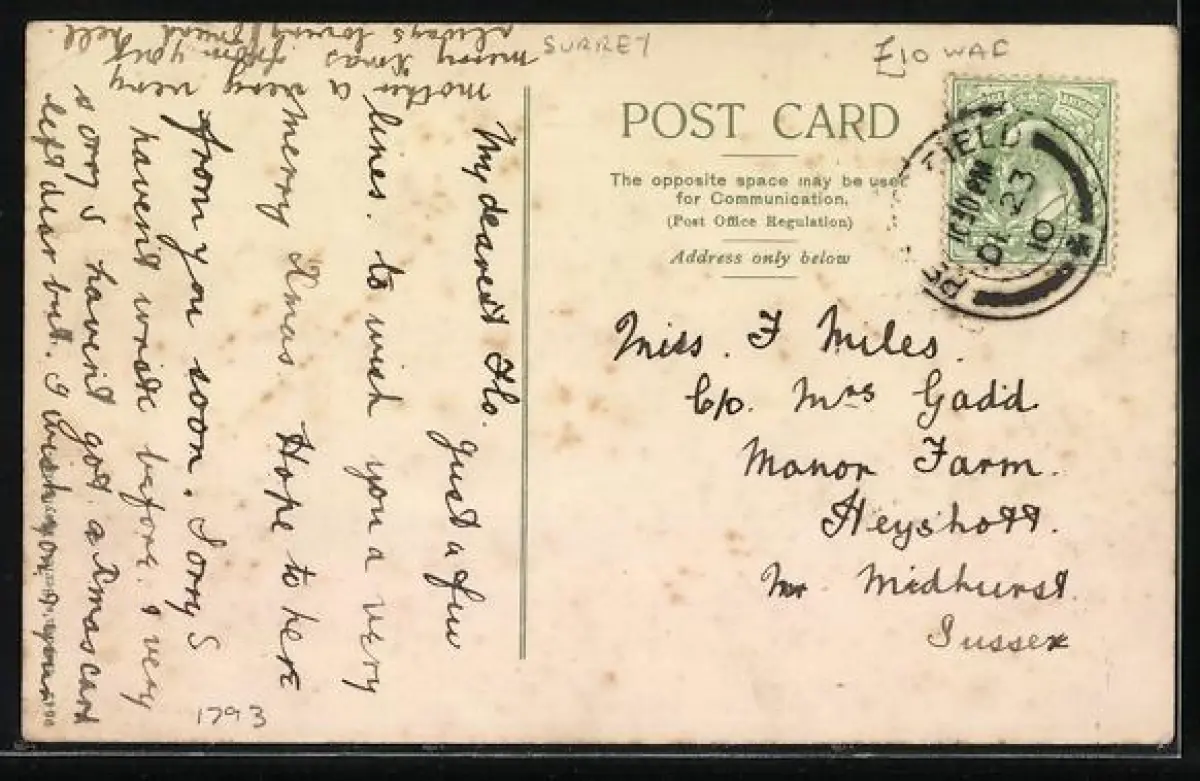 SURREY
£10 WAF
POST CARD
The opposite space may be used
for Communication.
(Post Office Regulation)
Address only below
FIELD
11.30 PM
DE 23
10
Miss. F Miles.
C/o. Mrs Gadd
Manor Farm.
Heyshott.
Nr. Midhurst.
Sussex
My dearest Flo.
Just a few
lines. to wish you a very
merry Xmas. Hope to here
from you soon. Sorry I
havent wrote before. I very
sorry I havent got a Xmas card
left dear but. I wish you &
mother a very very
merry Xmas from your
always loving friend Nell.
1793